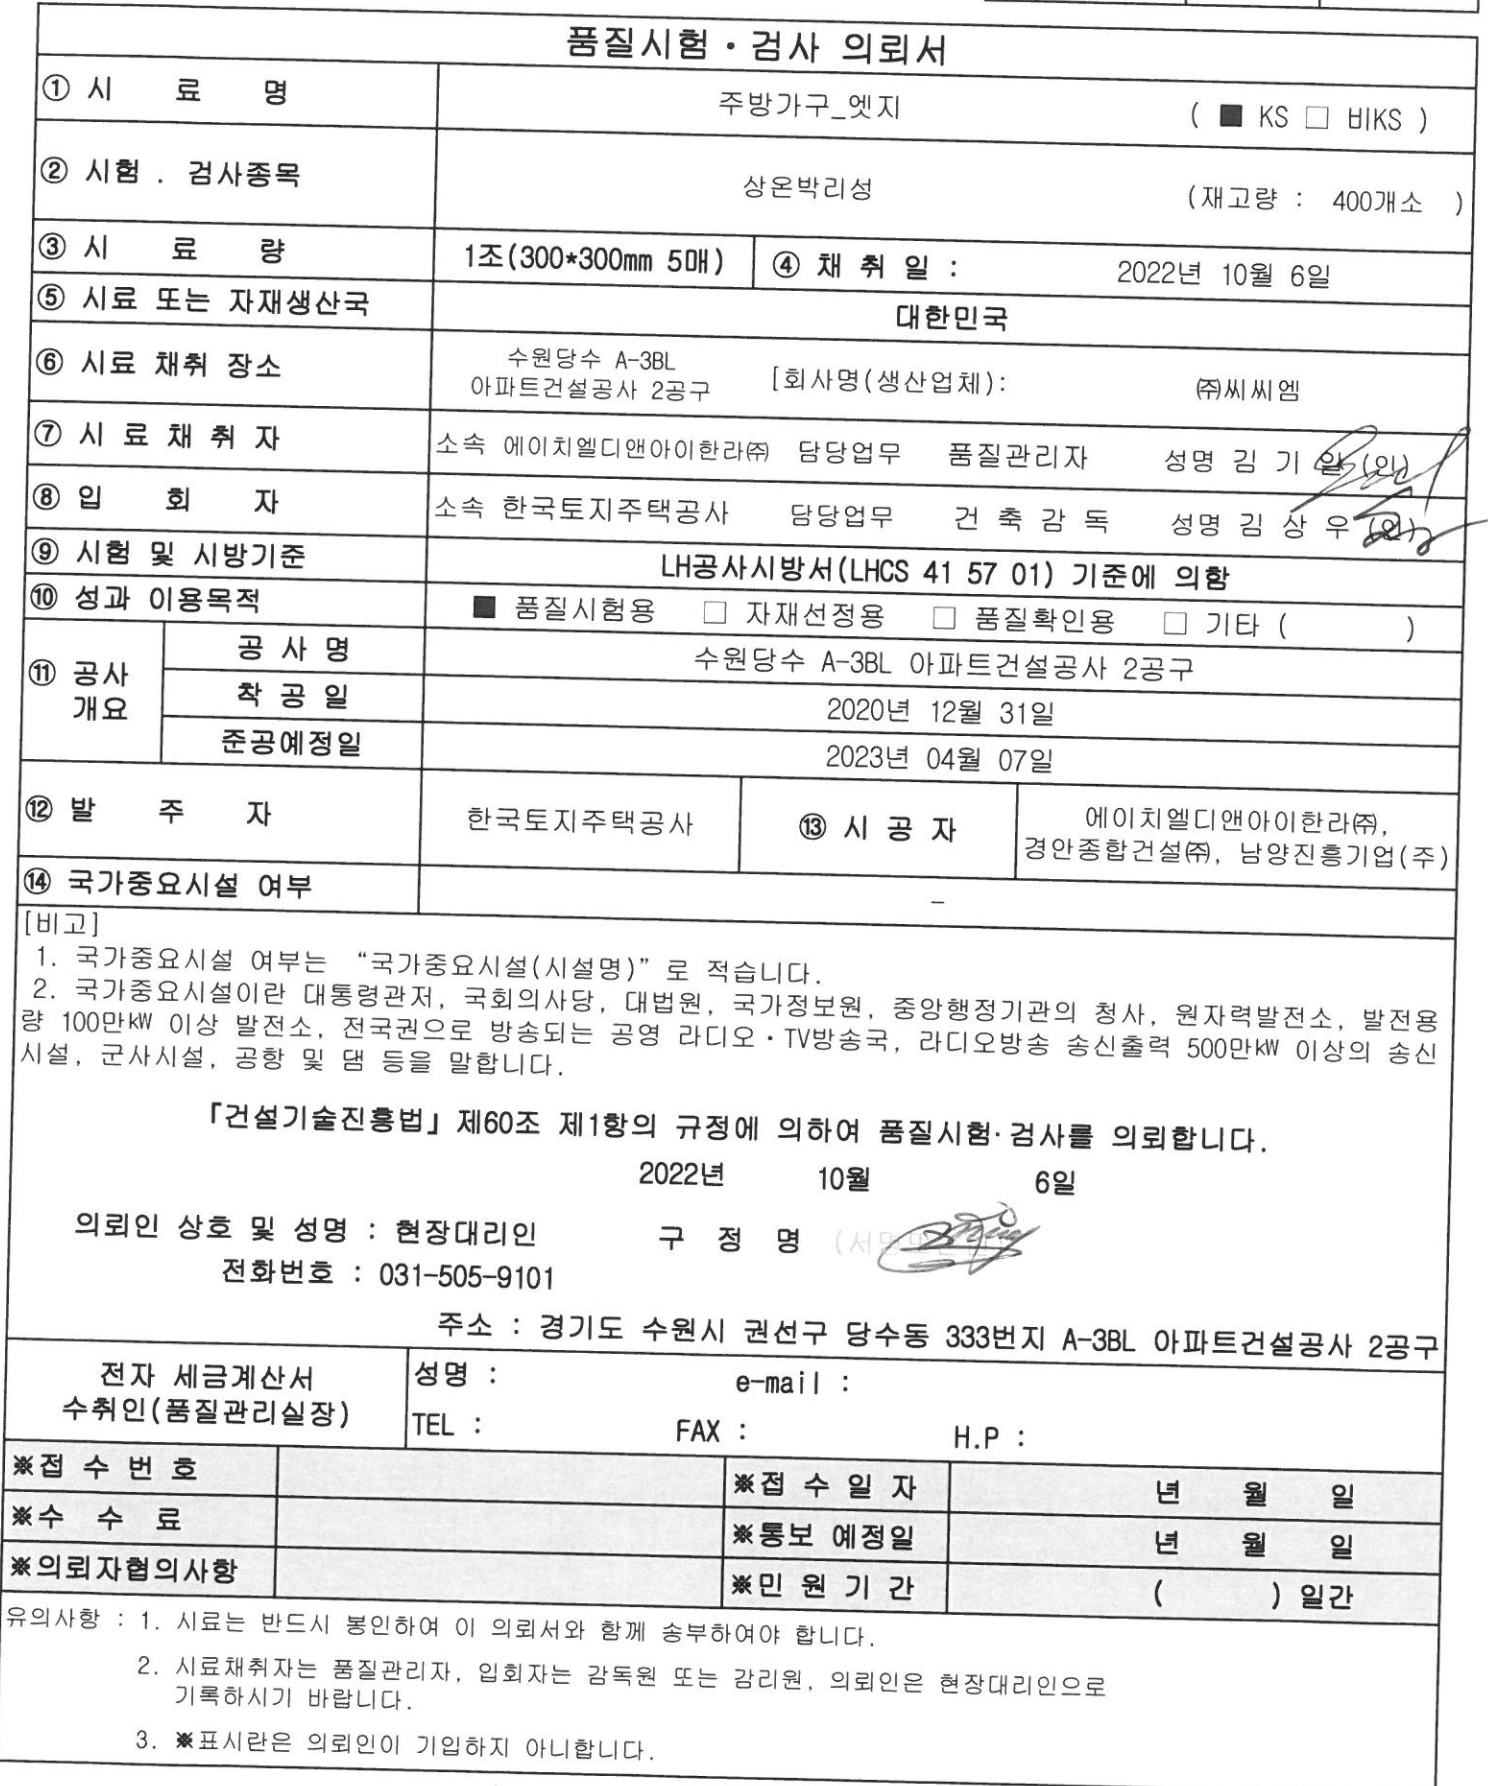 품질시험·검사 의뢰서
① 시 료 명 주방가구_엣지 ( ■ KS □ 비KS )
② 시험 . 검사종목 상온박리성 (재고량 : 400개소 )
③ 시 료 량 1조(300*300mm 5매) ④ 채 취 일 : 2022년 10월 6일
⑤ 시료 또는 자재생산국 대한민국
⑥ 시료 채취 장소 수원당수 A-3BL
아파트건설공사 2공구 [회사명(생산업체): ㈜씨씨엠
⑦ 시 료 채 취 자 소속 에이치엘디앤아이한라㈜ 담당업무 품질관리자 성명 김 기 일 (인)
⑧ 입 회 자 소속 한국토지주택공사 담당업무 건 축 감 독 성명 김 상 우 (인)
⑨ 시험 및 시방기준 LH공사시방서(LHCS 41 57 01) 기준에 의함
⑩ 성과 이용목적 ■ 품질시험용 □ 자재선정용 □ 품질확인용 □ 기타 ( )
⑪ 공사
개요
공 사 명 수원당수 A-3BL 아파트건설공사 2공구
착 공 일 2020년 12월 31일
준공예정일 2023년 04월 07일
⑫ 발 주 자 한국토지주택공사 ⑬ 시 공 자 에이치엘디앤아이한라㈜,
경안종합건설㈜, 남양진흥기업(주)
⑭ 국가중요시설 여부 -
[비고]
1. 국가중요시설 여부는 “국가중요시설(시설명)”로 적습니다.
2. 국가중요시설이란 대통령관저, 국회의사당, 대법원, 국가정보원, 중앙행정기관의 청사, 원자력발전소, 발전용
량 100만㎾ 이상 발전소, 전국권으로 방송되는 공영 라디오·TV방송국, 라디오방송 송신출력 500만㎾ 이상의 송신
시설, 군사시설, 공항 및 댐 등을 말합니다.
「건설기술진흥법」제60조 제1항의 규정에 의하여 품질시험·검사를 의뢰합니다.
2022년 10월 6일
의뢰인 상호 및 성명 : 현장대리인 구 정 명
전화번호 : 031-505-9101
주소 : 경기도 수원시 권선구 당수동 333번지 A-3BL 아파트건설공사 2공구
전자 세금계산서
수취인(품질관리실장)
성명 : e-mail :
TEL : FAX : H.P :
※접 수 번 호 ※접 수 일 자 년 월 일
※수 수 료 ※통보 예정일 년 월 일
※의뢰자협의사항 ※민 원 기 간 ( ) 일간
유의사항 : 1. 시료는 반드시 봉인하여 이 의뢰서와 함께 송부하여야 합니다.
2. 시료채취자는 품질관리자, 입회자는 감독원 또는 감리원, 의뢰인은 현장대리인으로
기록하시기 바랍니다.
3. ※표시란은 의뢰인이 기입하지 아니합니다.